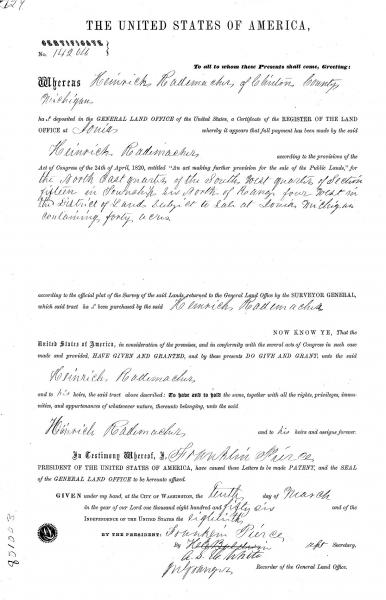 THE UNITED STATES OF AMERICA,
CERTIFICATE
No.
To all to whom these Presents shall come, Greeting:
Whereas Heinrich Rademacher of Clinton County
Michigan
ha s deposited in the GENERAL LAND OFFICE of the United States, a Certificate of the REGISTER OF THE LAND
OFFICE at Ionia whereby it appears that full payment has been made by the said
Heinrich Rademacher according to the provisions of the
Act of Congress of the 24th of April, 1820, entitled "An act making further provision for the sale of the Public Lands," for
the North East quarter of the South West quarter of Section
fifteen in Township six North of Range four West in
the District of Lands subject to sale at Ionia Michigan
containing forty acres
according to the official plat of the Survey of the said Lands returned to the General Land Office by the SURVEYOR GENERAL,
which said tract ha s been purchased by the said Heinrich Rademacher
NOW KNOW YE, That the
United States of America, in consideration of the premises, and in conformity with the several acts of Congress in such case
made and provided, HAVE GIVEN AND GRANTED, and by these presents DO GIVE AND GRANT, unto the said
Heinrich Rademacher
and to his heirs, the said tract above described: To have and to hold the same, together with all the rights, privileges, immu-
nities, and appurtenances of whatsoever nature, thereunto belonging, unto the said
Heinrich Rademacher and to his heirs and assigns forever.
In Testimony Whereof, I, Franklin Pierce
PRESIDENT OF THE UNITED STATES OF AMERICA, have caused these Letters to be made PATENT, and the SEAL
of the GENERAL LAND OFFICE to be hereunto affixed.
GIVEN under my hand, at the CITY OF WASHINGTON, the Tenth day of March
in the year of our Lord one thousand eight hundred and fifty six and of the
INDEPENDENCE OF THE UNITED STATES the eightieth
BY THE PRESIDENT: Franklin Pierce
By Secretary.
Recorder of the General Land Office.